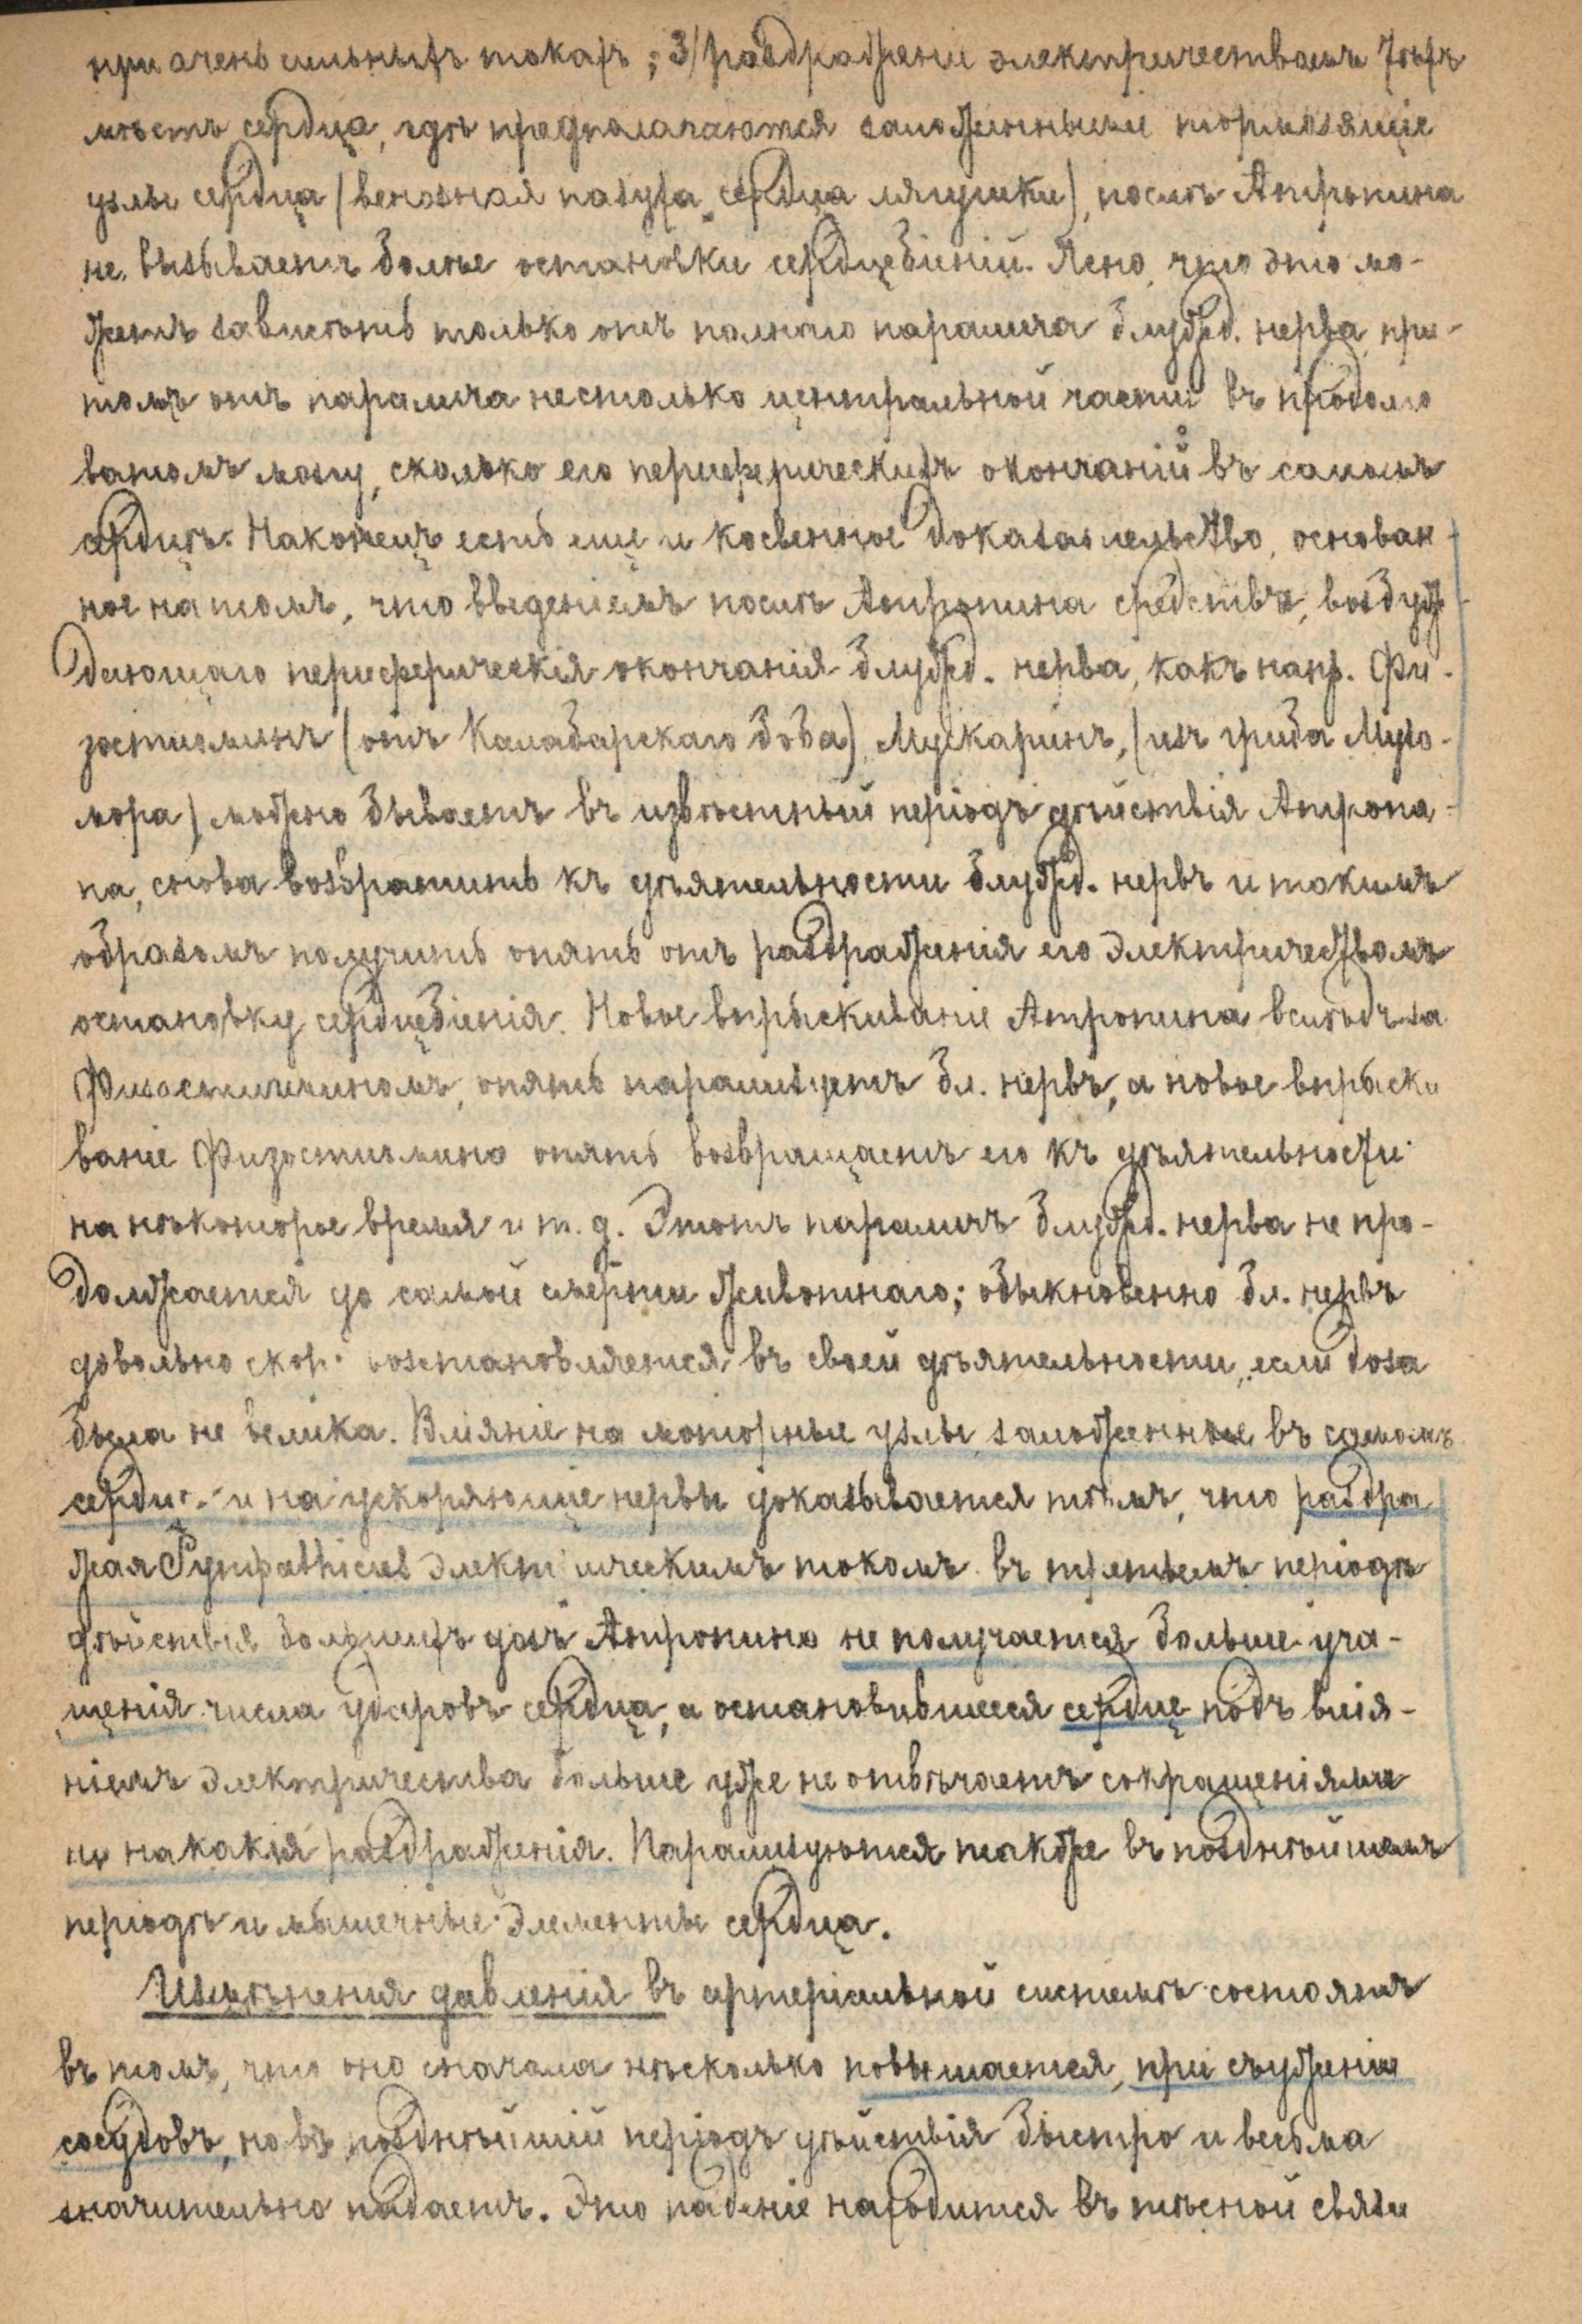 при очень сильныхъ токахъ; 3/ раздраженіе электричествомъ тѣхъ
мѣстъ сердца, гдѣ предполагаются заложенными тормозящіе
узлы сердца (венозная пазуха сердца лягушки), послѣ Атропина
не вызываетъ болѣе остановки сердцебіеній. Ясно, что это мо-
жетъ зависѣть только отъ полнаго паралича блужд. нерва, при-
томъ отъ паралича нестолько центральной части въ продолго
ватомъ мозгу, сколько его периферическихъ окончаній въ самомъ
сердцѣ. Наконецъ есть еще и косвенное доказательство, основан-
ное на томъ, что введеніемъ послѣ Атропина средствъ, возбуж-
дающаго периферическія окончанія блужд. нерва, какъ напр. Фи-
зостигминъ (отъ Калабарскаго боба), Мускаринъ, (изъ гриба Мухо-
мора) можно бываетъ въ извѣстный періодъ дѣйствія Атропи-
на, снова возвратить къ дѣятельности блужд. нервъ и такимъ
образомъ получить опять отъ раздраженія его электричествомъ
остановку сердцебіенія. Новое впрыскиваніе Атропина вслѣдъ за
Физостигминомъ, опять парализуетъ бл. нервъ, а новое впрыски
ваніе Физостигмина опять возвращаетъ его къ дѣятельности
на нѣкоторое время и т. д. Этотъ параличъ блужд. нерва не про-
должается до самой смерти животнаго; обыкновенно бл. нервъ
довольно скоро возстановляется въ своей дѣятельности, если доза
была не велика. Вліяніе на моторные узлы, заложенные въ самомъ
сердцѣ и на ускоряющіе нервы доказывается тѣмъ, что раздра
жая Sympathicus электрическимъ токомъ въ третьемъ періодѣ
дѣйствія большихъ дозъ Атропина не получается больше уча-
щенія числа ударовъ сердца, а остановившееся сердце подъ влія-
ніемъ электричества больше уже не отвѣчаетъ сокращеніями
ни на какія раздраженія. Парализуются также въ позднѣйшемъ
періодѣ и мышечные элементы сердца.
Измѣненія давленія въ артеріальной системѣ состоятъ
въ томъ, что оно сначала нѣсколько повышается, при съуженіи
сосудовъ, но въ позднѣйшій періодъ дѣйствія быстро и весьма
значительно падаетъ. Это паденіе находится въ тѣсной связи